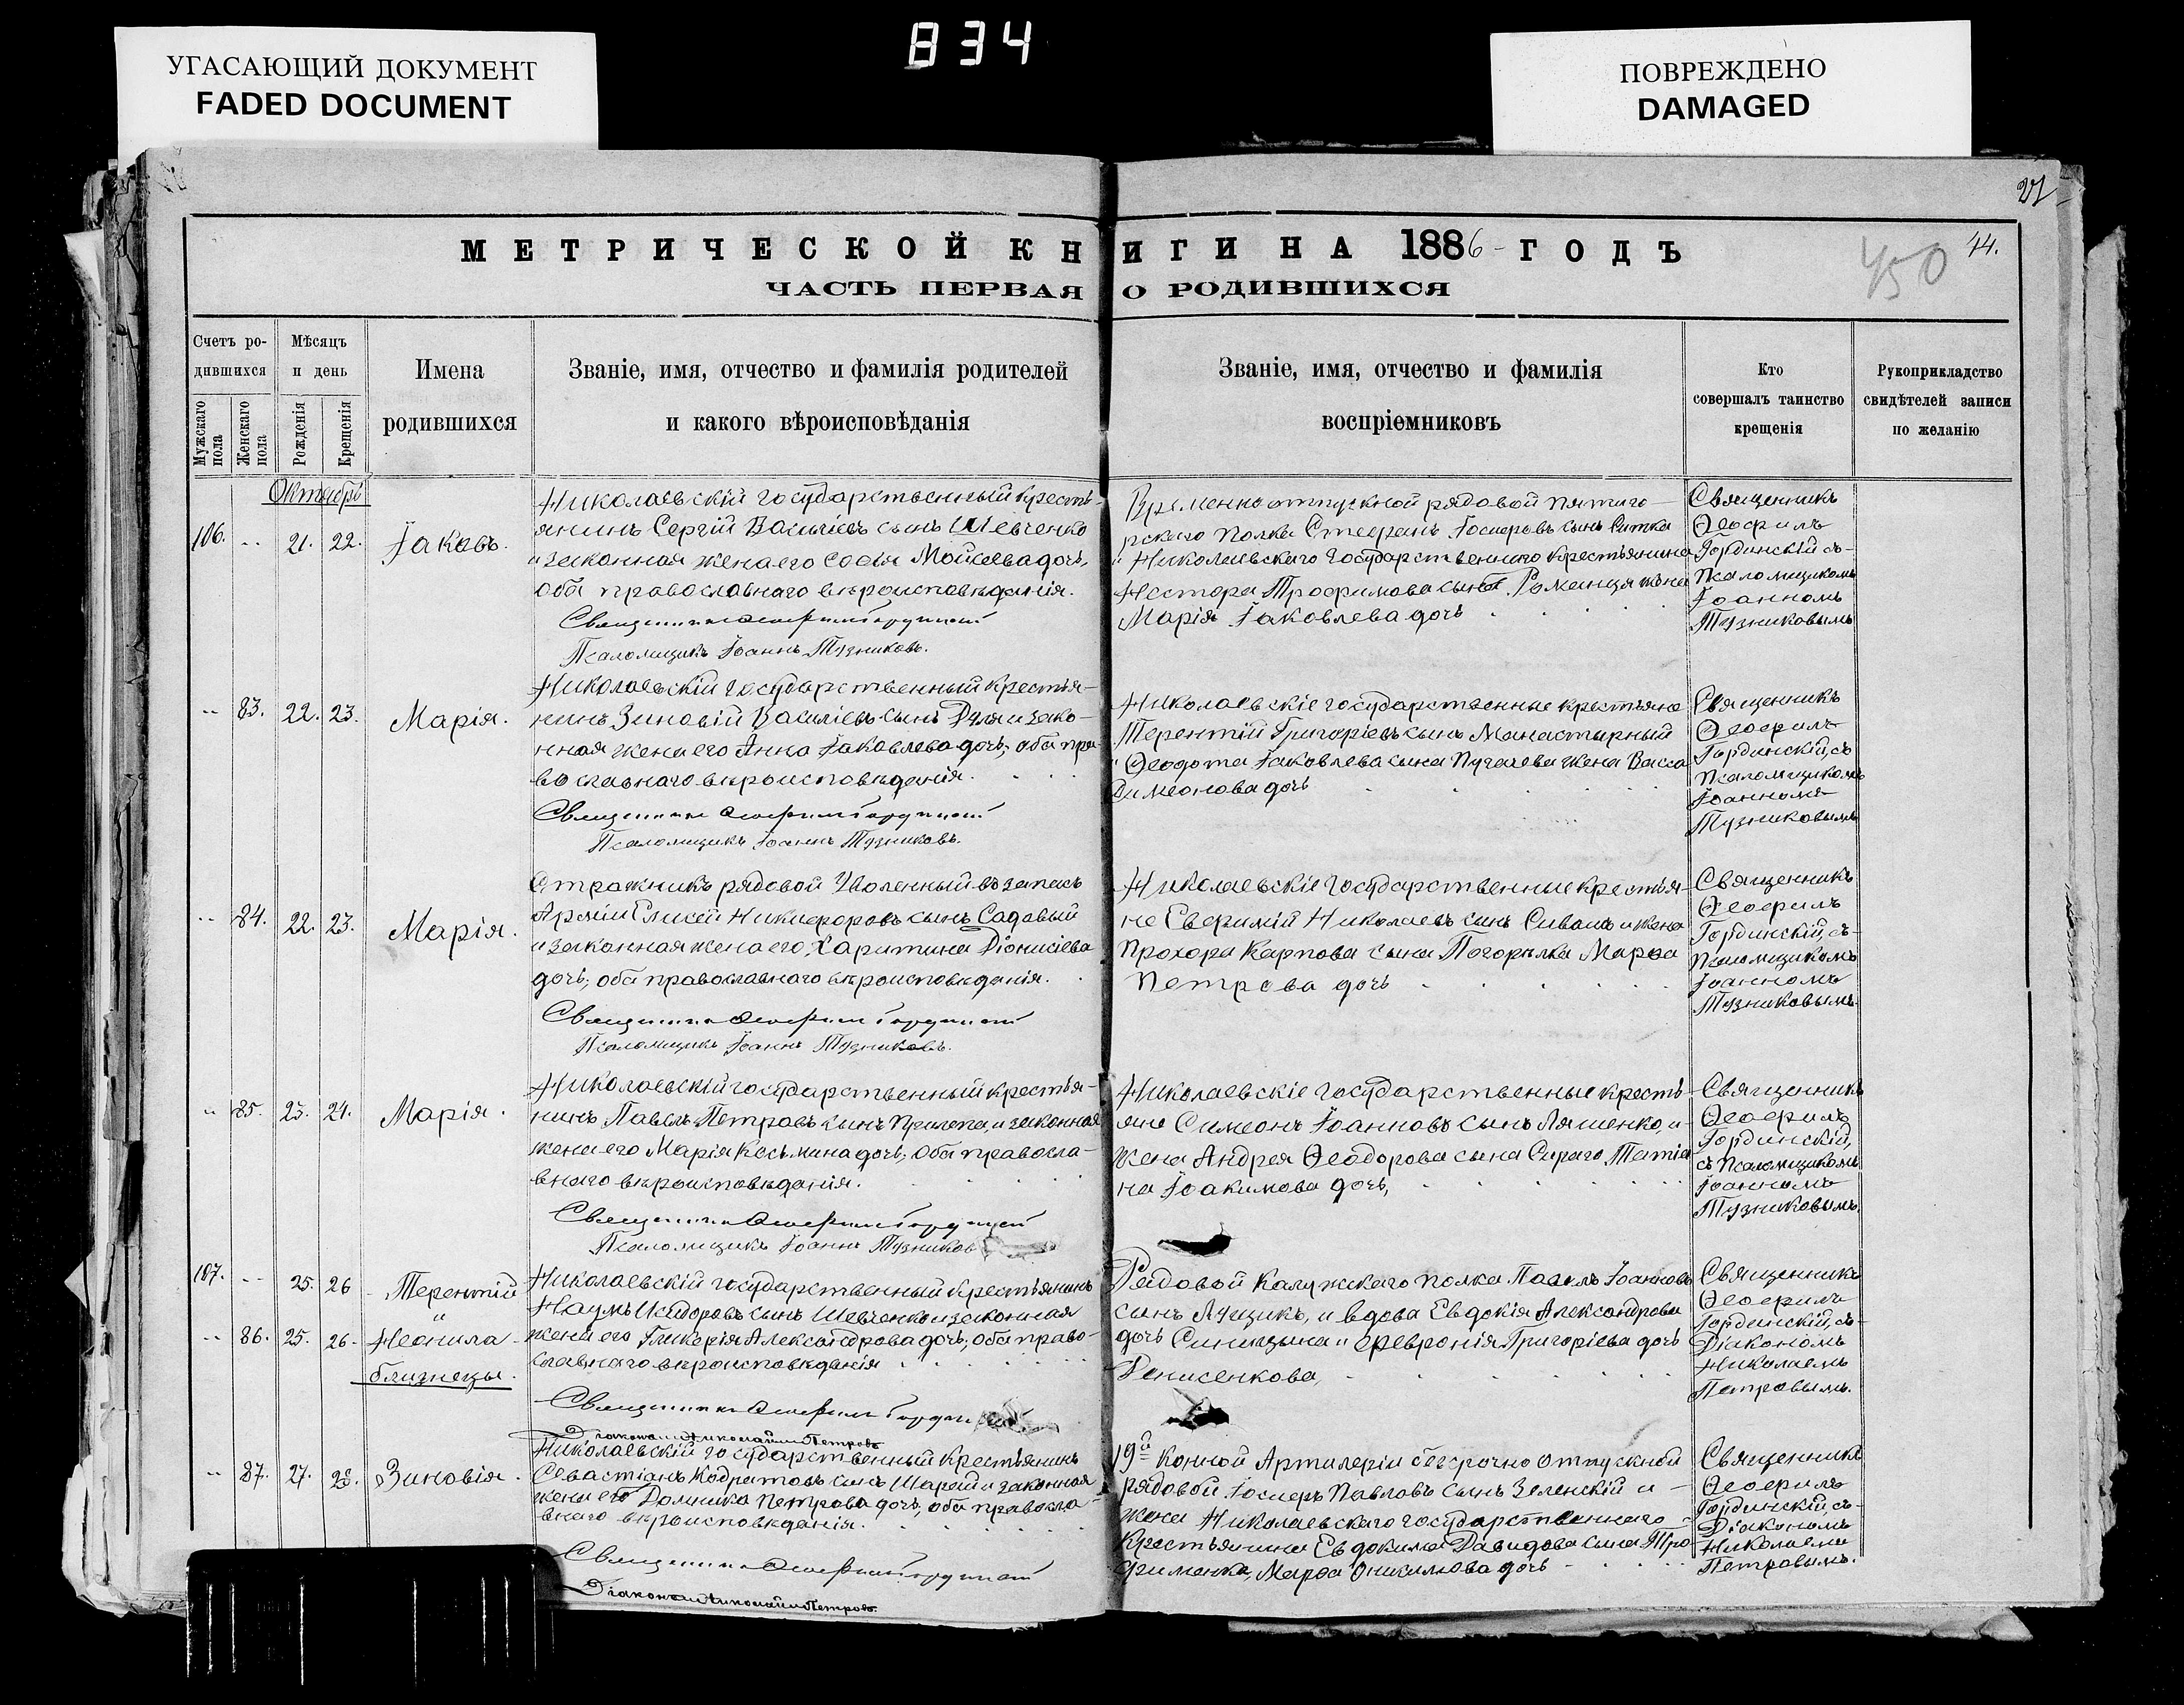 834
УГАСАЮЩИЙ ДОКУМЕНТ
FADED DOCUMENT
ПОВРЕЖДЕНО
DAMAGED
МЕТРИЧЕСКОЙ КНИГИ НА 1886 ГОДЪ
44.
450
ЧАСТЬ ПЕРВАЯ О РОДИВШИХСЯ
Счетъ родившихся
Мужскаго пола
Женскаго пола
Мѣсяцъ и день
Рожденія
Крещенія
Имена родившихся
Званіе, имя, отчество и фамилія родителей
и какого вѣроисповѣданія
Званіе, имя, отчество и фамилія
воспріемниковъ
Кто
совершалъ таинство
крещенія
Рукоприкладство
свидѣтелей записи
по желанію
Октябрь
106. -- 21. 22. Іаковъ.
Николаевскій государственный кресть-
янинъ Сергій Васильевъ сынъ Шевченко
и законная жена его Софья Мойсеева дочь,
оба православнаго вѣроисповѣданія.
Священникъ Ѳеофилъ Гординскій
Псаломщикъ Іоаннъ Тузниковъ.
Временно отпускной рядовой Пятиго-
рскаго полка Стефанъ Іосифовъ сынъ Ситка
и Николаевскаго государственнаго крестьянина
Нестора Трофимова сына Романца жена
Марія Іаковлева дочь
Священникъ
Ѳеофилъ
Гординскій съ
Псаломщикомъ
Іоанномъ
Тузниковымъ
-- 83. 22. 23. Марія.
Николаевскій государственный крестья-
нинъ Зиновій Василіевъ сынъ Дуля и зако-
нная жена его Анна Іаковлева дочь, оба пра-
вославнаго вѣроисповѣданія.
Священникъ Ѳеофилъ Гординскій
Псаломщикъ Іоаннъ Тузниковъ.
Николаевскіе государственные крестьяне
Терентій Григоріевъ сынъ Манастырный
и Ѳеодота Іаковлева сына Пугачева жена Васса
Симеонова дочь
Священникъ
Ѳеофилъ
Гординскій, съ
Псаломщикомъ
Іоанномъ
Тузниковымъ
-- 84. 22. 23. Марія.
Стражникъ рядовой Уволенный въ запасъ
Арміи Елисей Никифоровъ сынъ Садовый
и законная жена его Харитина Діонисіева
дочь; оба православнаго вѣроисповѣданія.
Священникъ Ѳеофилъ Гординскій
Псаломщикъ Іоаннъ Тузниковъ.
Николаевскіе государственные крестья-
не Евфимій Николаевъ сынъ Сивашъ и жена
Прохора Карпова сына Погорѣлка Марѳа
Петрова дочь
Священникъ
Ѳеофилъ
Гординскій, съ
Псаломщикомъ
Іоанномъ
Тузниковымъ.
" 85. 23. 24. Марія.
Николаевскій государственный крестья-
нинъ Павелъ Петровъ сынъ Прилепа, и законная
жена его Марія Косьмина дочь; оба правосла-
внаго вѣроисповѣданія.
Священникъ Ѳеофилъ Гординскій
Псаломщикъ Іоаннъ Тузников
Николаевскіе государственные кресть-
яне Симеонъ Іоанновъ сынъ Ляшенко, и
жена Андрея Ѳеодорова сына Сираго Татіа
на Іоакимова дочь,
Священникъ
Ѳеофилъ
Гординскій,
съ Псаломщикомъ
Іоанномъ
Тузниковымъ.
107. -- 25. 26 Терентій
"
-- 86. 25. 26. Неонила
близнецы.
Николаевскій государственный крестьянинъ
Наумъ Исидоровъ сынъ Шевченко и законная
жена его Гликерія Александрова дочь, оба право-
славнаго вѣроисповѣданія
Священникъ Ѳеофилъ Гордин
Діаконъ Николай Петровъ
Рядовой Калужскаго полка Павелъ Іоанновъ
сынъ Лущикъ, и вдова Евдокія Александрова
дочь Синицына и Февронія Григоріева дочь
Денисенкова,
Священникъ
Ѳеофилъ
Гординскій, съ
Діакономъ
Николаемъ
Петровымъ.
-- 87. 27. 28. Зиновія.
Николаевскій государственный крестьянинъ
Севастіанъ Кодратовъ сынъ Шарой и законная
жена его Домника Петрова дочь, оба правосла-
внаго вѣроисповѣданія.
Священникъ Ѳеофилъ Гординскій
Діаконъ Николай Петровъ.
19й Конной Артилеріи безсрочно отпускной
рядовой Іосифъ Павловъ сынъ Зеленскій и
жена Николаевскаго государственнаго
крестьянина Евдокима Давидова сына Тро-
фименка, Марѳа Оникимова дочь
Священникъ
Ѳеофилъ
Гординскій, съ
Діакономъ
Николаемъ
Петровымъ.